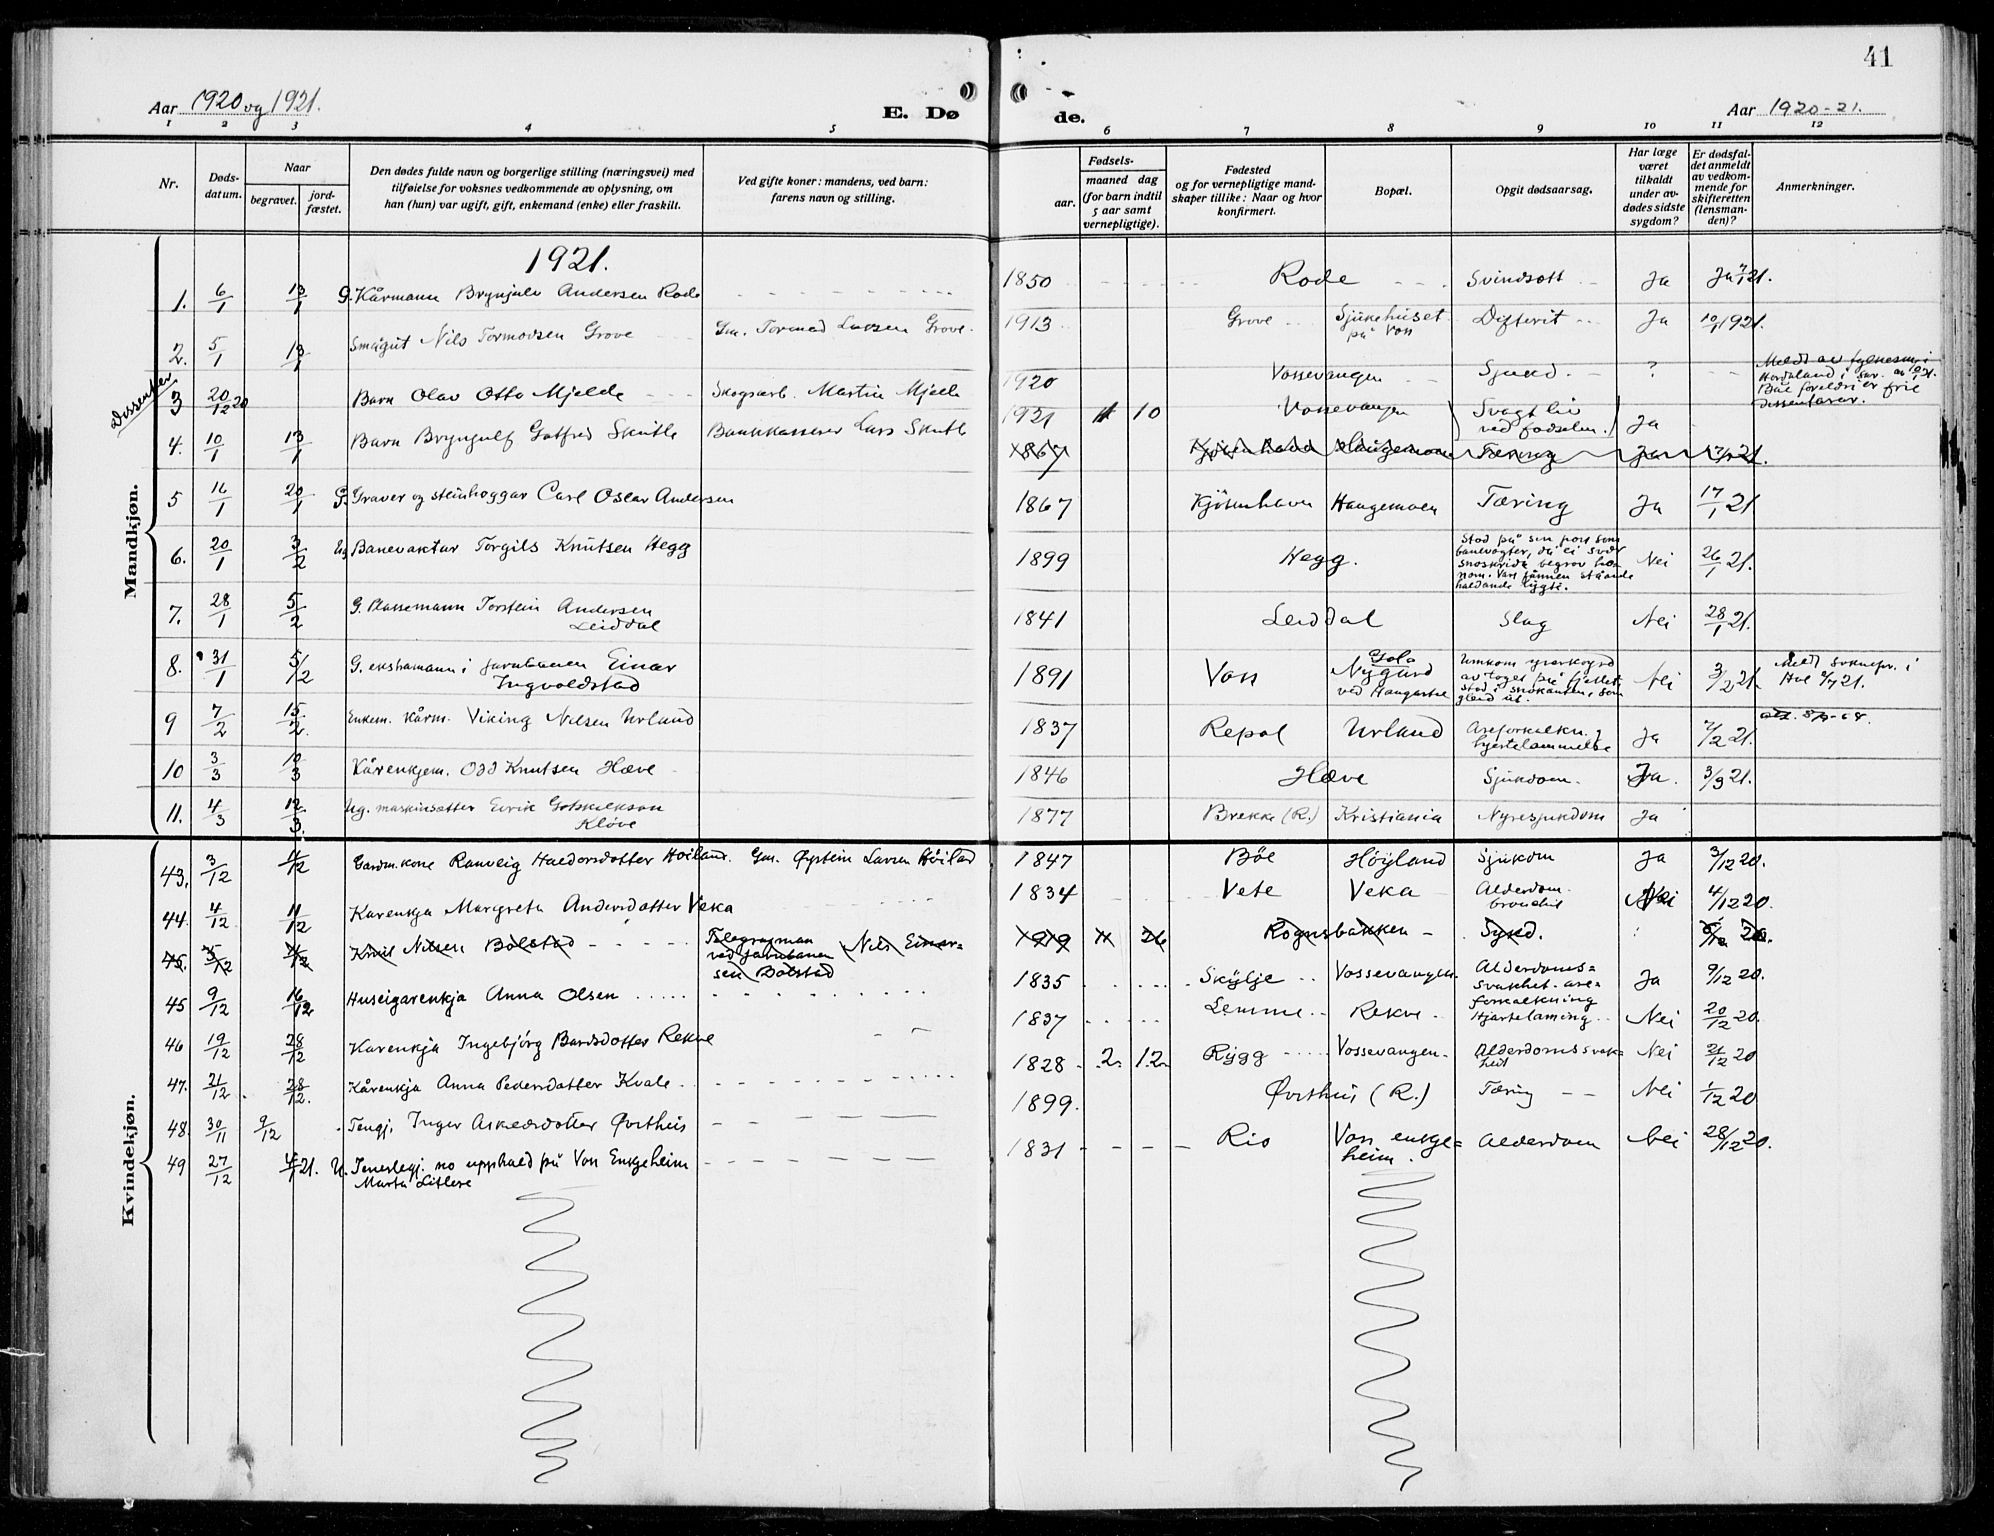 41
Aar 1920 og 1921.
E. Dø
de.
Aar 1920-21.
1 2 3 4 5 6 7 8 9 10 11 12
Nr.
Døds-
datum.
Naar
begravet.
jord-
fæstet.
Den dødes fulde navn og borgerlige stilling (næringsvei) med
tilføielse for voksnes vedkommende av oplysning, om
han (hun) var ugift, gift, enkemand (enke) eller fraskilt.
Ved gifte koner: mandens, ved barn:
farens navn og stilling.
Fødsels-
aar.
maaned dag
(for barn indtil
5 aar samt
vernepligtige).
Fødested
og for vernepligtige mand-
skaper tillike: Naar og hvor
konfirmert.
Bopæl.
Opgit dødsaarsag.
Har læge
været
tilkaldt
under av-
dødes sidste
sygdom?
Er dødsfal-
det anmeldt
av vedkom-
mende for
skifteretten
(lensman-
den)?
Anmerkninger.
Mandkjøn.
1921.
1. 6/1 13/1 G. Kårmann Brynjulv Andersen Rode 1850 Rode Svindsott Ja Ja 7/1 21.
2. 5/1 13/1 Smågut Nils Tormodsen Grove Gm. Tormod Larsen Grove 1913 Grove Sjukehuset på Voss Difterit Ja 10/1 1921.
Dissenter 3 20/12 20 Barn Olav Otto Mjelde Skogsarb. Martin Mjelde 1920 Vossevangen Sjukd. ?
4. 10/1 13/1 Barn Bryngulf Gotfred Skutle Bankkasserer Lars Skutle 1921 1 10 Vossevangen Svagt liv ved fødselen. Ja
1867 Tæring Ja 17/1 21.
5 16/1 20/1 G. Graver og steinhoggar Carl Oscar Andersen 1867 Kjøbenhavn Haugamoen Tæring Ja 17/1 21
6. 20/1 3/2 Ug Banevaktar Torgils Knutsen Hegg 1899 Hegg. Stod på sin post som banevogter, då ei svær snøskrida begrov honom. Vart funnen ståande haldande lygti. Nei 26/1 21.
7. 28/1 5/2 G. Plassemann Torstein Andersen Leiddal 1841 Leiddal Slag Nei 28/1 21.
8. 31/1 5/2 G. ekstramann i jarnbanen Einar Ingvoldstad 1891 Voss Nygård ved Haugastøl Nei 3/2 21.
9 7/2 15/2 Enkem. Kårm. Viking Nilsen Urland 1837 Repal Urland Åreforkalkn. hjertelammelse Ja 7/2 21.
10 3/3 10/3 Kårenkjem. Odd Knutsen Hæve 1846 Hæve Sjukdom. Ja. 3/3 21.
11. 4/3 12/3. Ug. maskinsetter Eirik Gotskalkson Kløve 1877 Brekke (R.) Kristiania Nyresjukdom Ja
Kvindekjøn.
43. 3/12 11/12 Gardm.kone Ranveig Haldorsdotter Høiland. Gm. Øystein Larsen Høiland 1847 Bøe Høyland Sjukdom Ja 3/12 20.
44. 4/12 11/12 Kårenkja Margreta Andersdotter Veka 1834 Vete Veka Alderdom. Nei 4/12 20.
45. 3/12 11/12 Knut Nilsen Bolstad Telegrafman ved jarnbanen Nils Einarsen Bolstad 1919 11 26 Rognsbakken Sjukd. 20.
45 9/12 16/12 Huseigarenkja Anna Olsen 1835 Skylje Vossevangen. Alderdoms= svakhet. åre= forkalkning Ja 9/12 20.
46 19/12 28/12 Kårenkja Ingebjørg Bardsdotter Rekve 1837 Lemme Rekve Hjartelaming Nei 20/12 20.
47. 21/12 28/12. Kårenkja Anna Pedersdotter Kvale 1828 2 12 Rygg Vossevangen Alderdomssvakhet Nei 21/12 20
48. 30/11 9/12 Tengj. Inger Askedsdotter Øvsthus 1899. Øvsthus (R.) Tæring Nei 1/12 20
49 27/12 4/1 21. U. Tenestegj. no upphald på Voss Enkjeheim Marta Litlere 1831 Rio Voss enkje= heim. Alderdom Nei 28/12 20.